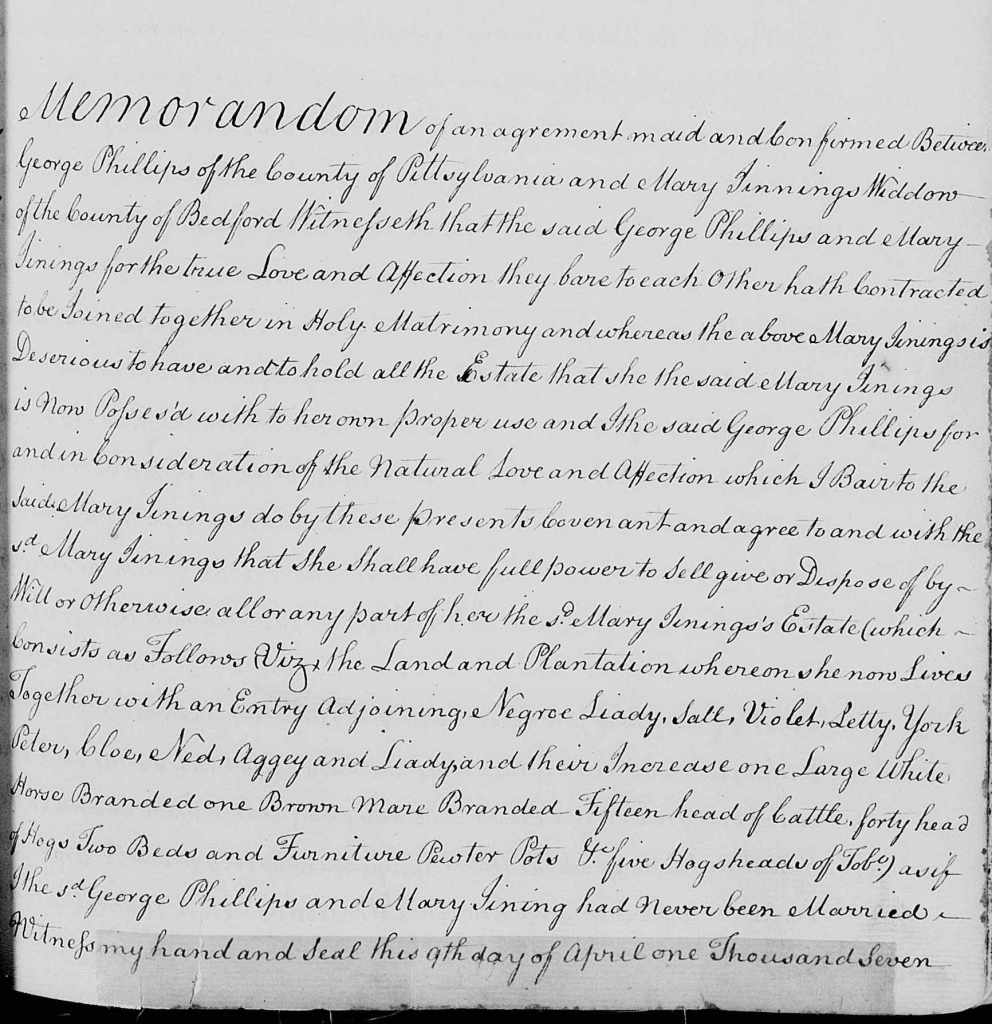 Memorandom of an agrement maid and Confirmed Between
George Phillips of the County of Pittsylvania and Mary Jinnings Widdow
of the County of Bedford Witnesseth that the said George Phillips and Mary
Jinings for the true Love and Affection they bare to each Other hath Contracted
to be Joined together in Holy Matrimony and whereas the above Mary Jinings is
Deserious to have and to hold all the Estate that she the said Mary Jinings
is Now Possess'd with to her own proper use and I the said George Phillips for
and in Consideration of the Natural Love and Affection which I Bair to the
said Mary Jinings do by these presents Covenant and agree to and with the
sd. Mary Jinings that She Shall have full power to Sell give or Dispose of by
Will or Otherwise all or any part of her the sd. Mary Jinings's Estate (which
Consists as Follows (Viz, the Land and Plantation whereon she now Lives
Together with an Entry Adjoining, Negroe Liady, Sall, Violet, Letty, York
Peter, Cloe, Ned, Aggey and Liady, and their Increase one Large White
Horse Branded one Brown Mare Branded Fifteen head of Cattle, forty head
of Hogs Two Beds and Furniture Pewter Pots &c five Hogsheads of Tobo.) as if
I the sd George Phillips and Mary Jining had Never been Married
Witness my hand and Seal this 9th day of April one Thousand Seven